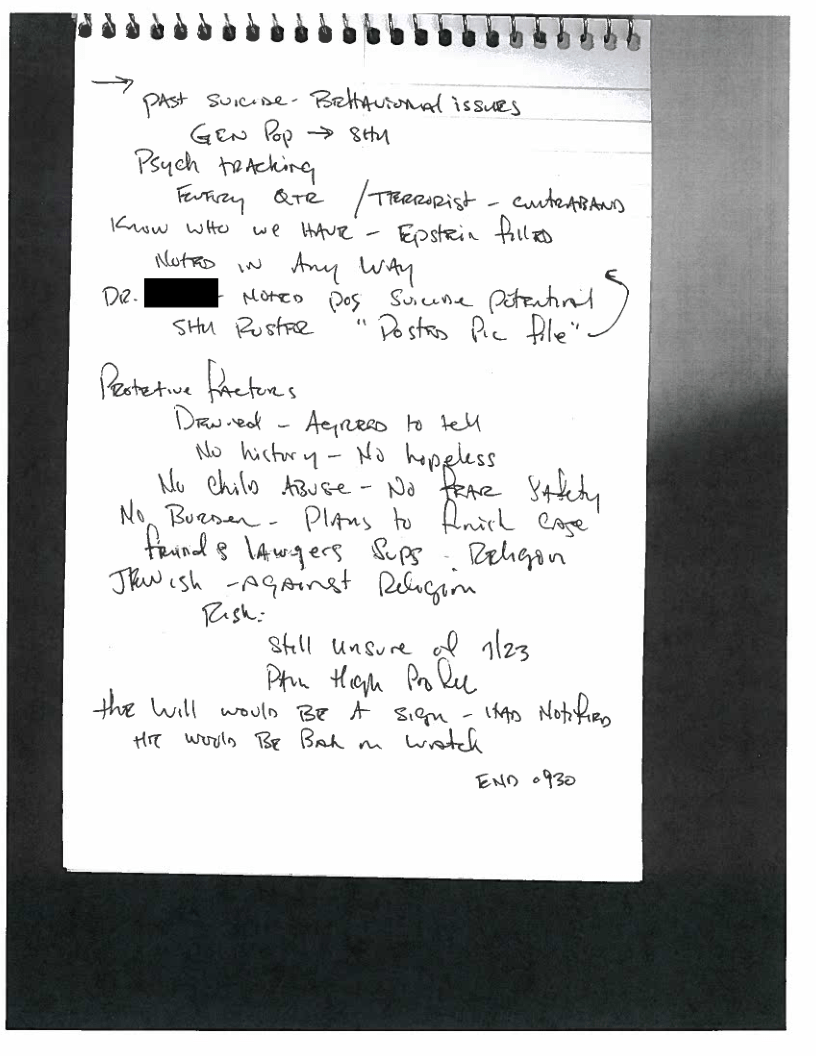 →
PAST SUICIDE - BEHAVIORAL ISSUES
GEN Pop → SHU
Psych tracking
Every QTR / TERRORIST - CONTRABAND
KNOW WHO WE HAVE - Epstein filled
NOTED IN Any WAY
DR. - NOTED pos Suicide potential
SHU ROSTER "Posted Pic file"
Protetive factors
Denied - AGREED to tell
No history - No hopeless
No Child ABUSE - No FEAR SAfety
No BURDEN - PLANS to finish case
friends lawyers sups - Religion
JEWISH - AGAINST Religion
Risk:
Still unsure of 7/23
High Profile
the Will would BE A sign - HAD Notified
HE would BE Bak on watch
END 0930